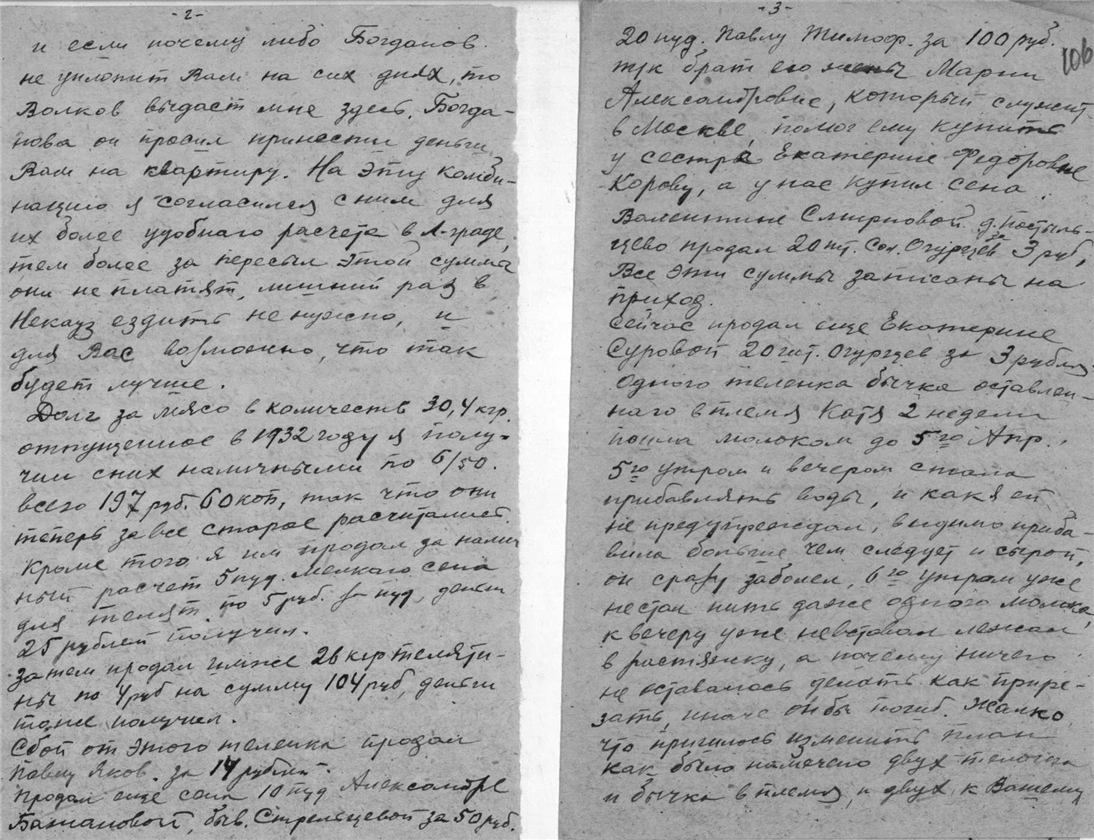 -2-
и если почему либо Богданов.
не уплотит Вам на сих днях, то
Волков выдаст мне здесь. Богда-
нова он просил принести деньги
Вам на квартиру. На эту комби-
нацию я согласился с ним для
их более удобнаго расчета в Л-граде,
тем более за пересыл этой сумма
они не платят, лишний раз в
Некауз ездить не нужно, и
для Вас возможно, что так
будет лучше.
Долг за мясо в количеств 30,4 кгр.
отпущенное в 1932 году я полу-
чил с них наличными по 6/50.
всего 197 руб. 60 коп, так что они
теперь за все старое расчитались.
Кроме того я им продал за налич
ный расчет 5 пуд. мелкого сена
для телят по 5 руб. за пуд, деньги
25 рублей получил.
Затем продал им же 26 кгр теляти-
ны по 4 руб на сумму 104 руб, деньги
тоже получил.
Сбой от этого теленка продал
Павлу Яков. за 14 рублей.
Продал еще сена 10 пуд Александре
Бажановой, быв. Стрельцевой за 50 руб.
-3-
106
20 пуд. Павлу Тимоф. за 100 руб.
т/к брат его жены Марии
Александровне, который служит
в Москве, помог ему купить
у сестре Екатерине Федоровне
Корову, а у нас купил сена
Валентине Смирновой д. Постыль-
цево продал 20 шт. Сол. Огурцев за 3 руб,
Все эти суммы записаны на
приход.
Сейчас продал еще Екатерине
Суровой 20 шт. Огурцев за 3 рубля.
Одного теленка бычка оставлен-
наго в племя Катя 2 недели
поила молоком до 5го Апр.
5го утром и вечером стала
прибавлять воды, и как я ей
не предупреждал, видимо приба-
вила больше чем следует и сырой,
он сразу заболел, 6го утром уже
не стал пить даже одного молока,
к вечеру уже не вставал лежал
в растяжку, а почему ничего
не оставалось делать как прире-
зать, иначе он бы погиб. Жалко
что пришлось изменить план
как было намечено двух телочка
и бычка в племя, и двух к Вашему